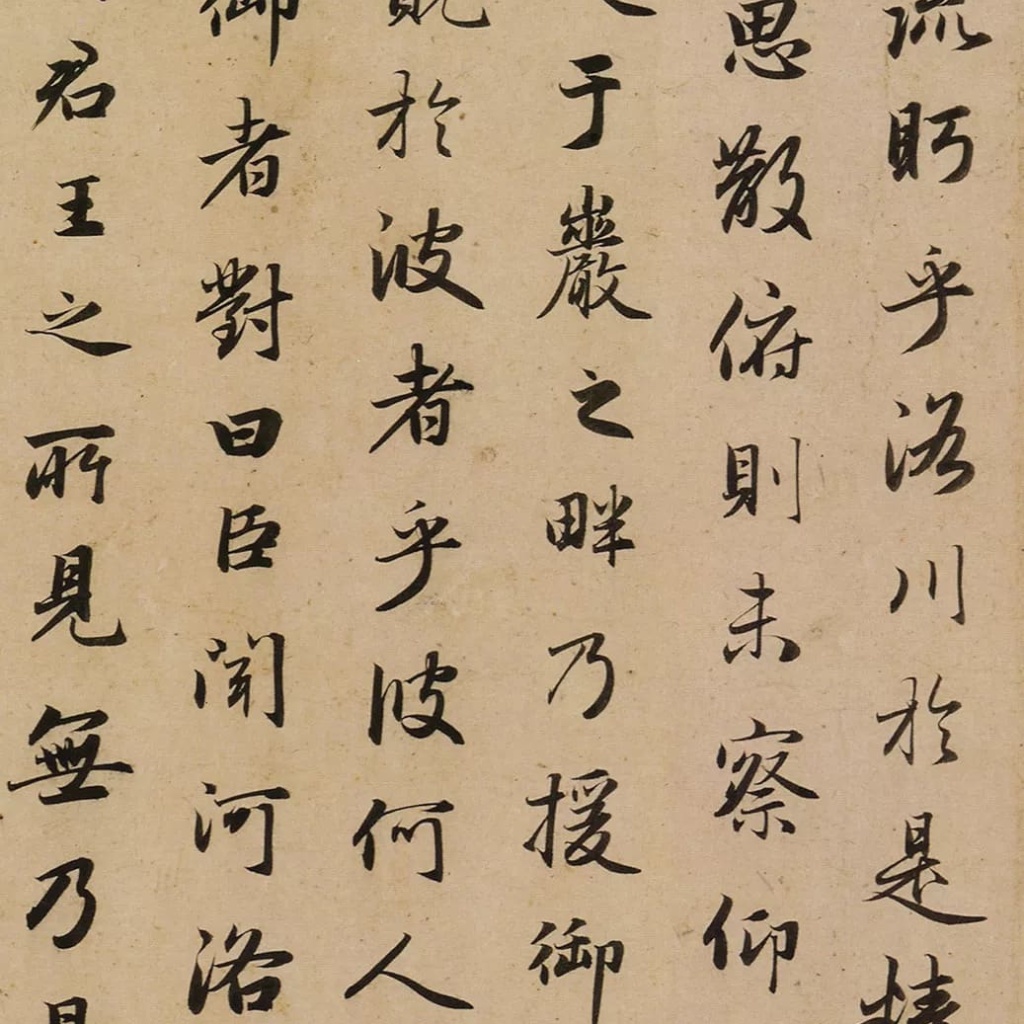 流眄乎洛川於是精
思散俯則未察仰
于巖之畔乃援御
於彼者乎彼何人
御者對曰臣聞河洛
君王之所見無乃